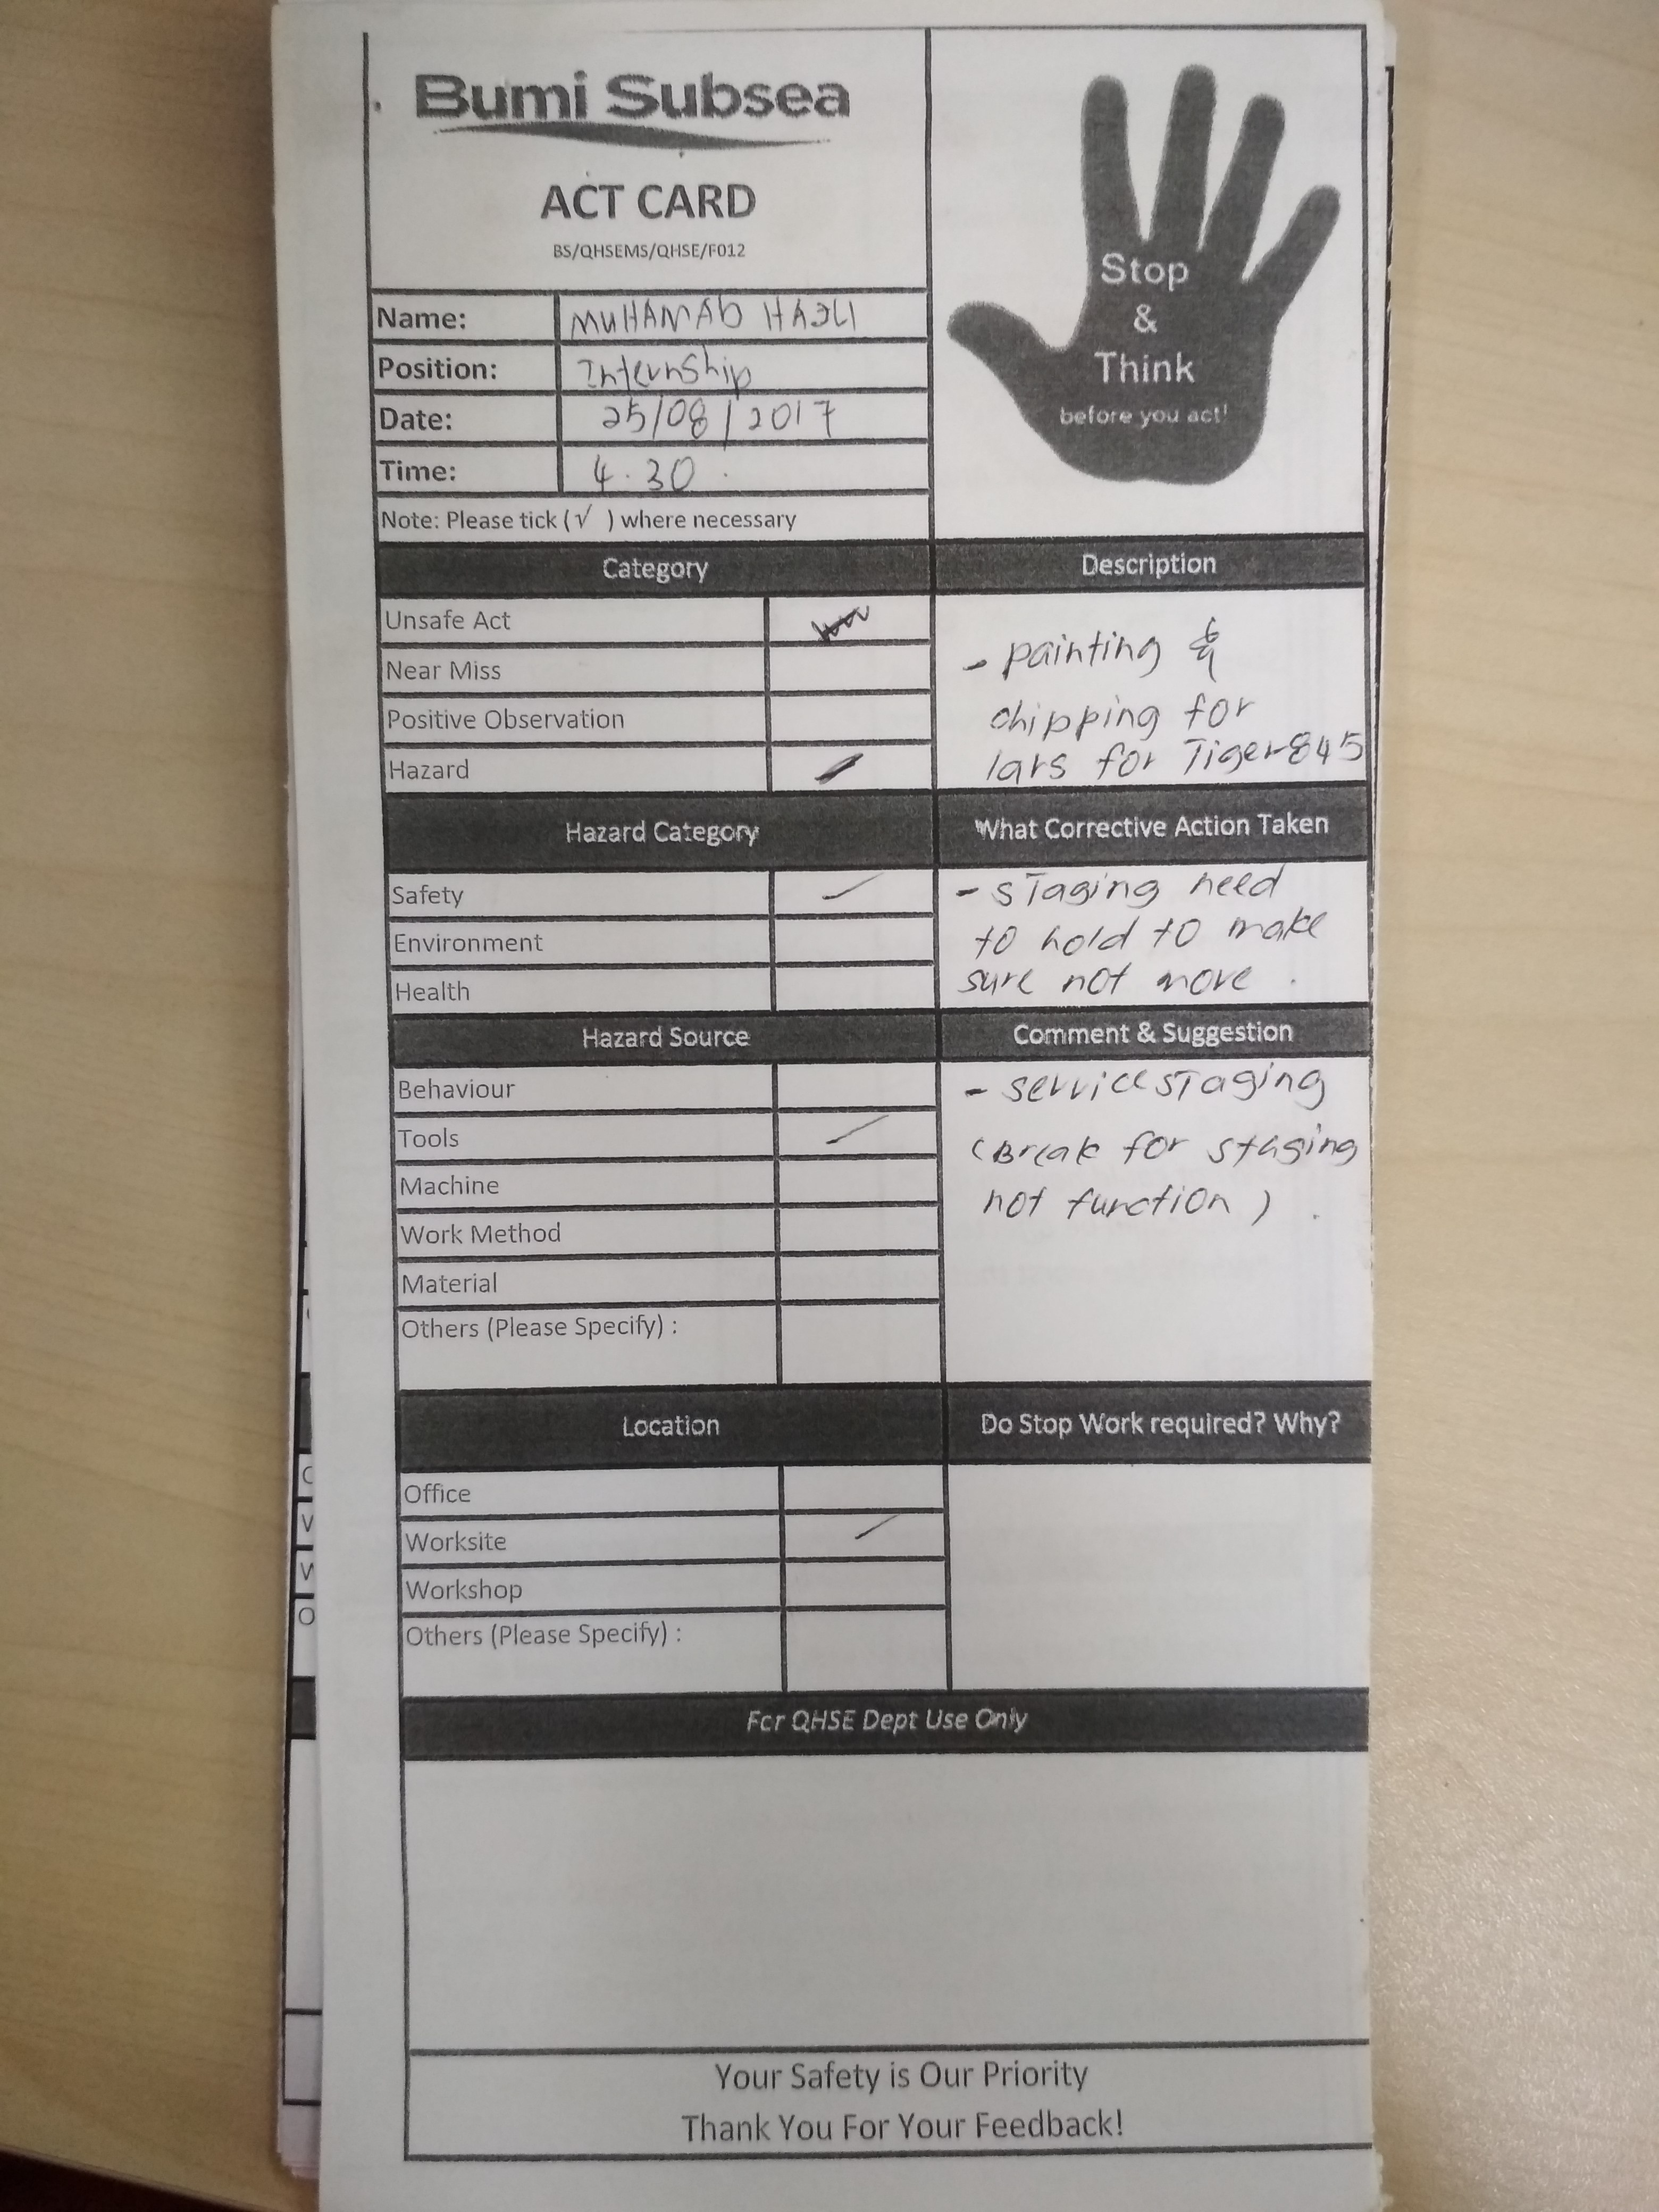 Bumi Subsea
ACT CARD
BS/QHSEMS/QHSE/F012
Stop
&
Think
before you act!
Name: MUHAMAD
Position: Internship
Date: 25/08/2017
Time: 4.30
Note: Please tick (√ ) where necessary
Category
Unsafe Act
Near Miss
Positive Observation
Hazard
Description
- painting &
chipping for
lars for Tiger 845
Hazard Category
Safety
Environment
Health
What Corrective Action Taken
- staging need
to hold to make
sure not move.
Hazard Source
Behaviour
Tools
Machine
Work Method
Material
Others (Please Specify) :
Comment & Suggestion
- service staging
(Break for staging
not function).
Location
Office
Worksite
Workshop
Others (Please Specify) :
Do Stop Work required? Why?
For QHSE Dept Use Only
Your Safety is Our Priority
Thank You For Your Feedback!